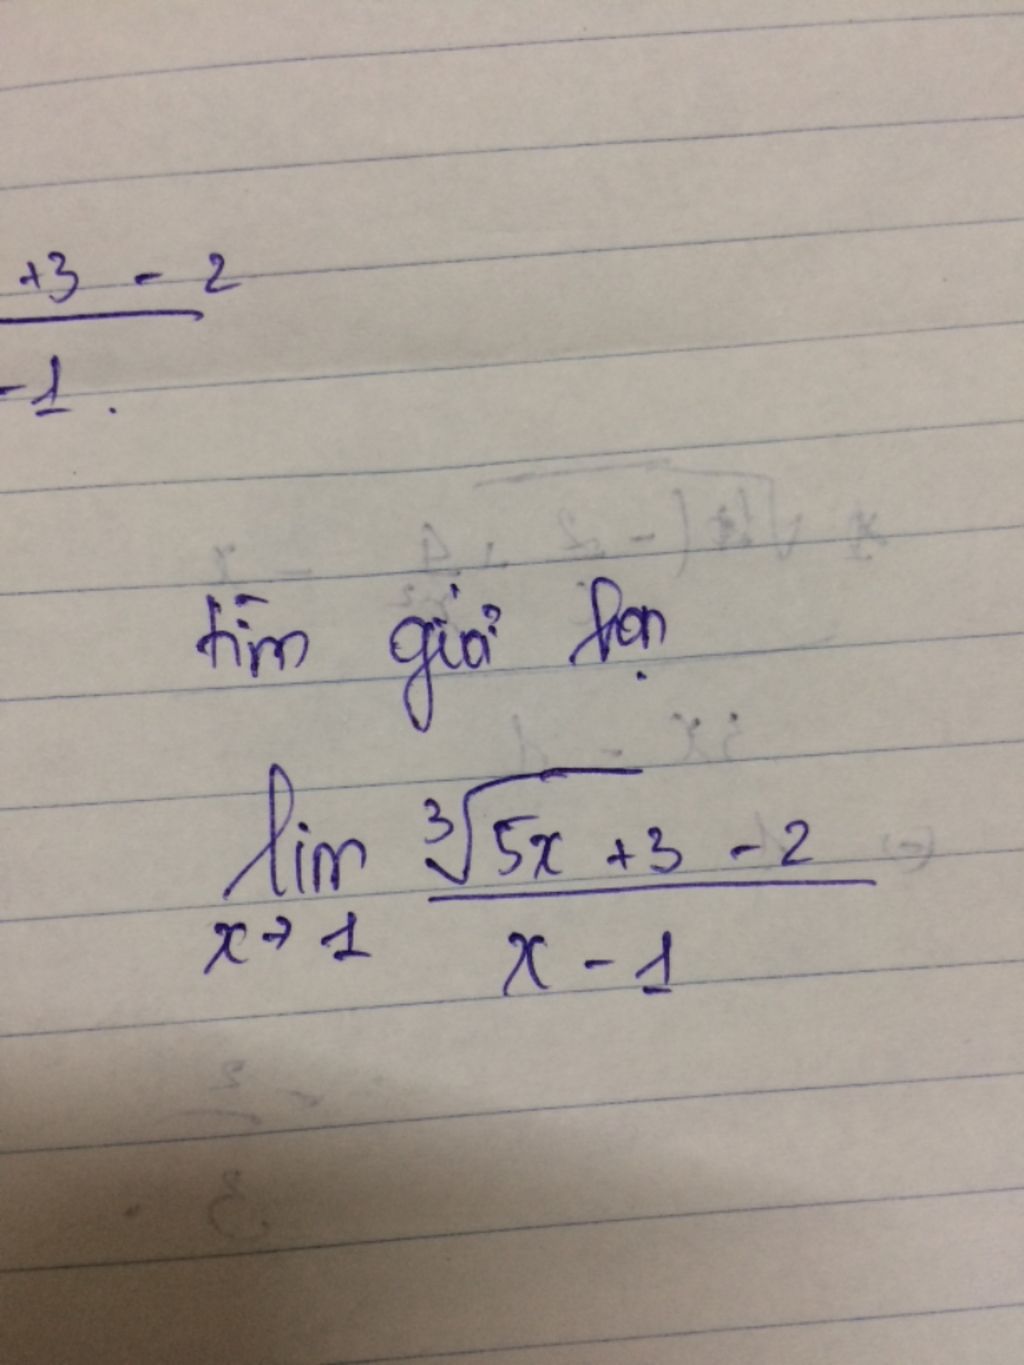 +3 - 2
-1.
tìm giới hạn
lim ∛5x +3 - 2
x→1 x - 1